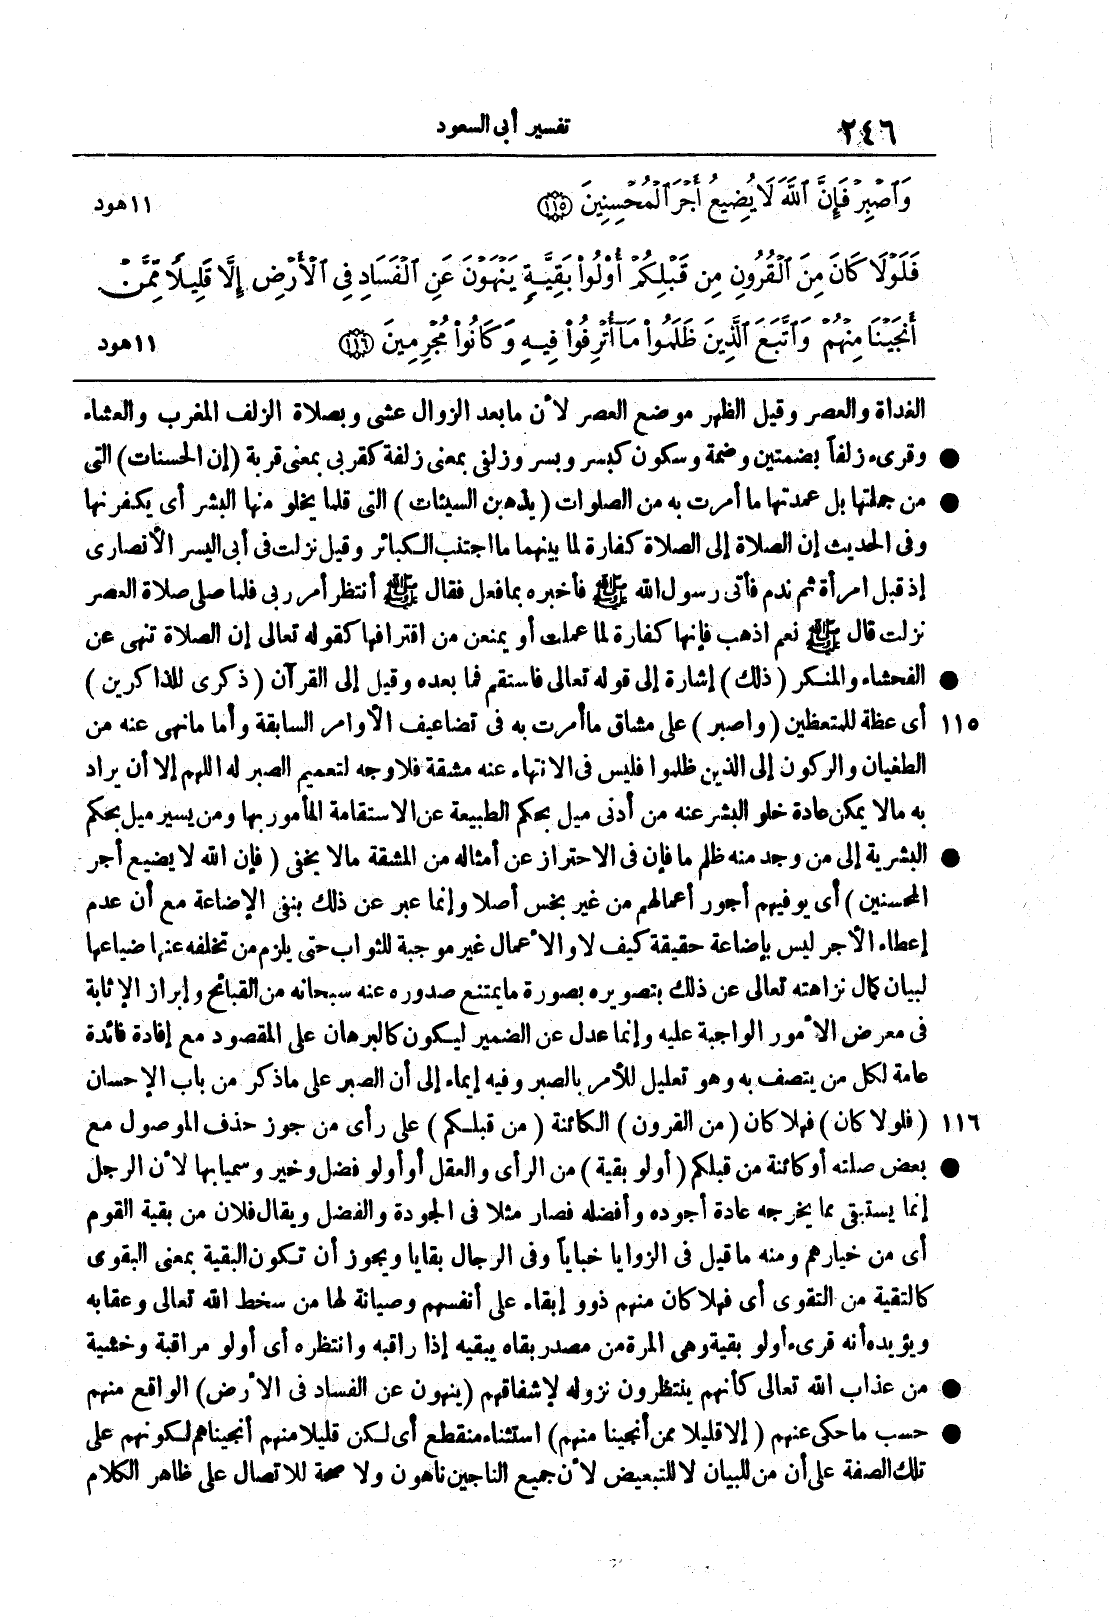 ٢٤٦ تفسير أبى السعود
وَٱصۡبِرۡ فَإِنَّ ٱللَّهَ لَا يُضِيعُ أَجۡرَ ٱلۡمُحۡسِنِينَ ﴿١١٥﴾ ١١ هود
فَلَوۡلَا كَانَ مِنَ ٱلۡقُرُونِ مِن قَبۡلِكُمۡ أُوْلُواْ بَقِيَّةٖ يَنۡهَوۡنَ عَنِ ٱلۡفَسَادِ فِى ٱلۡأَرۡضِ إِلَّا قَلِيلًا مِّمَّنۡ
أَنجَيۡنَا مِنۡهُمۡ وَٱتَّبَعَ ٱلَّذِينَ ظَلَمُواْ مَآ أُتۡرِفُواْ فِيهِ وَكَانُواْ مُجۡرِمِينَ ﴿١١٦﴾ ١١ هود
الغداة والعصر وقيل الظهر موضع العصر لأن ما بعد الزوال عشى وبصلاة الزلف المغرب والعشاء
● وقرىء زلفاً بضمتين وضمة وسكون كبسر وبسر وزلفى بمعنى زلفة كقربى بمعنى قربة (إن الحسنات) التى
● من جملتها بل عمدتها ما أمرت به من الصلوات (يذهبن السيئات) التى قلما يخلو منها البشر أى يكفرنها
وفى الحديث إن الصلاة إلى الصلاة كفارة لما بينهما ما اجتنب الكبائر وقيل نزلت فى أبى اليسر الأنصارى
إذ قبل امرأة ثم ندم فأتى رسول الله ﷺ فأخبره بما فعل فقال ﷺ أنتظر أمر ربى فلما صلى صلاة العصر
نزلت قال ﷺ نعم اذهب فإنها كفارة لما عملت أو يمنعن من اقترافها كقوله تعالى إن الصلاة تنهى عن
● الفحشاء والمنكر (ذلك) إشارة إلى قوله تعالى فاستقم فما بعده وقيل إلى القرآن (ذكرى للذاكرين)
١١٥ أى عظة للمتعظين (واصبر) على مشاق ما أمرت به فى تضاعيف الأوامر السابقة وأما مانهى عنه من
الطغيان والركون إلى الذين ظلموا فليس فى الانتهاء عنه مشقة فلا وجه لتعميم الصبر له اللهم إلا أن يراد
به مالا يمكن عادة خلو البشر عنه من أدنى ميل بحكم الطبيعة عن الاستقامة المأمور بها ومن يسير ميل بحكم
● البشرية إلى من وجد منه ظلم ما فإن فى الاحتراز عن أمثاله من المشقة مالا يخفى (فإن الله لا يضيع أجر
المحسنين) أى يوفيهم أجور أعمالهم من غير بخس أصلا وإنما عبر عن ذلك بنفى الإضاعة مع أن عدم
إعطاء الأجر ليس بإضاعة حقيقة كيف لا والأعمال غير موجبة للثواب حتى يلزم من تخلفه عنها ضياعها
لبيان كمال نزاهته تعالى عن ذلك بتصويره بصورة ما يمتنع صدوره عنه سبحانه من القبائح وإبراز الإثابة
فى معرض الأمور الواجبة عليه وإنما عدل عن الضمير ليكون كالبرهان على المقصود مع إفادة فائدة
عامة لكل من يتصف به وهو تعليل للأمر بالصبر وفيه إيماء إلى أن الصبر على ماذكر من باب الإحسان
١١٦ (فلولا كان) فهلا كان (من القرون) الكائنة (من قبلكم) على رأى من جوز حذف الموصول مع
● بعض صلته أو كائنة من قبلكم (أولو بقية) من الرأى والعقل أو أولو فضل وخير وسميا بها لأن الرجل
إنما يستبقى مما يخرجه عادة أجوده وأفضله فصار مثلا فى الجودة والفضل ويقال فلان من بقية القوم
أى من خيارهم ومنه ما قيل فى الزوايا خبايا وفى الرجال بقايا ويجوز أن تكون البقية بمعنى البقوى
كالتقية من التقوى أى فهلا كان منهم ذوو إبقاء على أنفسهم وصيانة لها من سخط الله تعالى وعقابه
ويؤيده أنه قرىء أولو بقية وهى المرة من مصدر بقاه يبقيه إذا راقبه وانتظره أى أولو مراقبة وخشية
● من عذاب الله تعالى كأنهم ينتظرون نزوله لإشفاقهم (ينهون عن الفساد فى الأرض) الواقع منهم
● حسب ما حكى عنهم (إلا قليلا ممن أنجينا منهم) استثناء منقطع أى لكن قليلا منهم أنجيناهم لكونهم على
تلك الصفة على أن من للبيان لا للتبعيض لأن جميع الناجين ناهون ولا صحة للاتصال على ظاهر الكلام